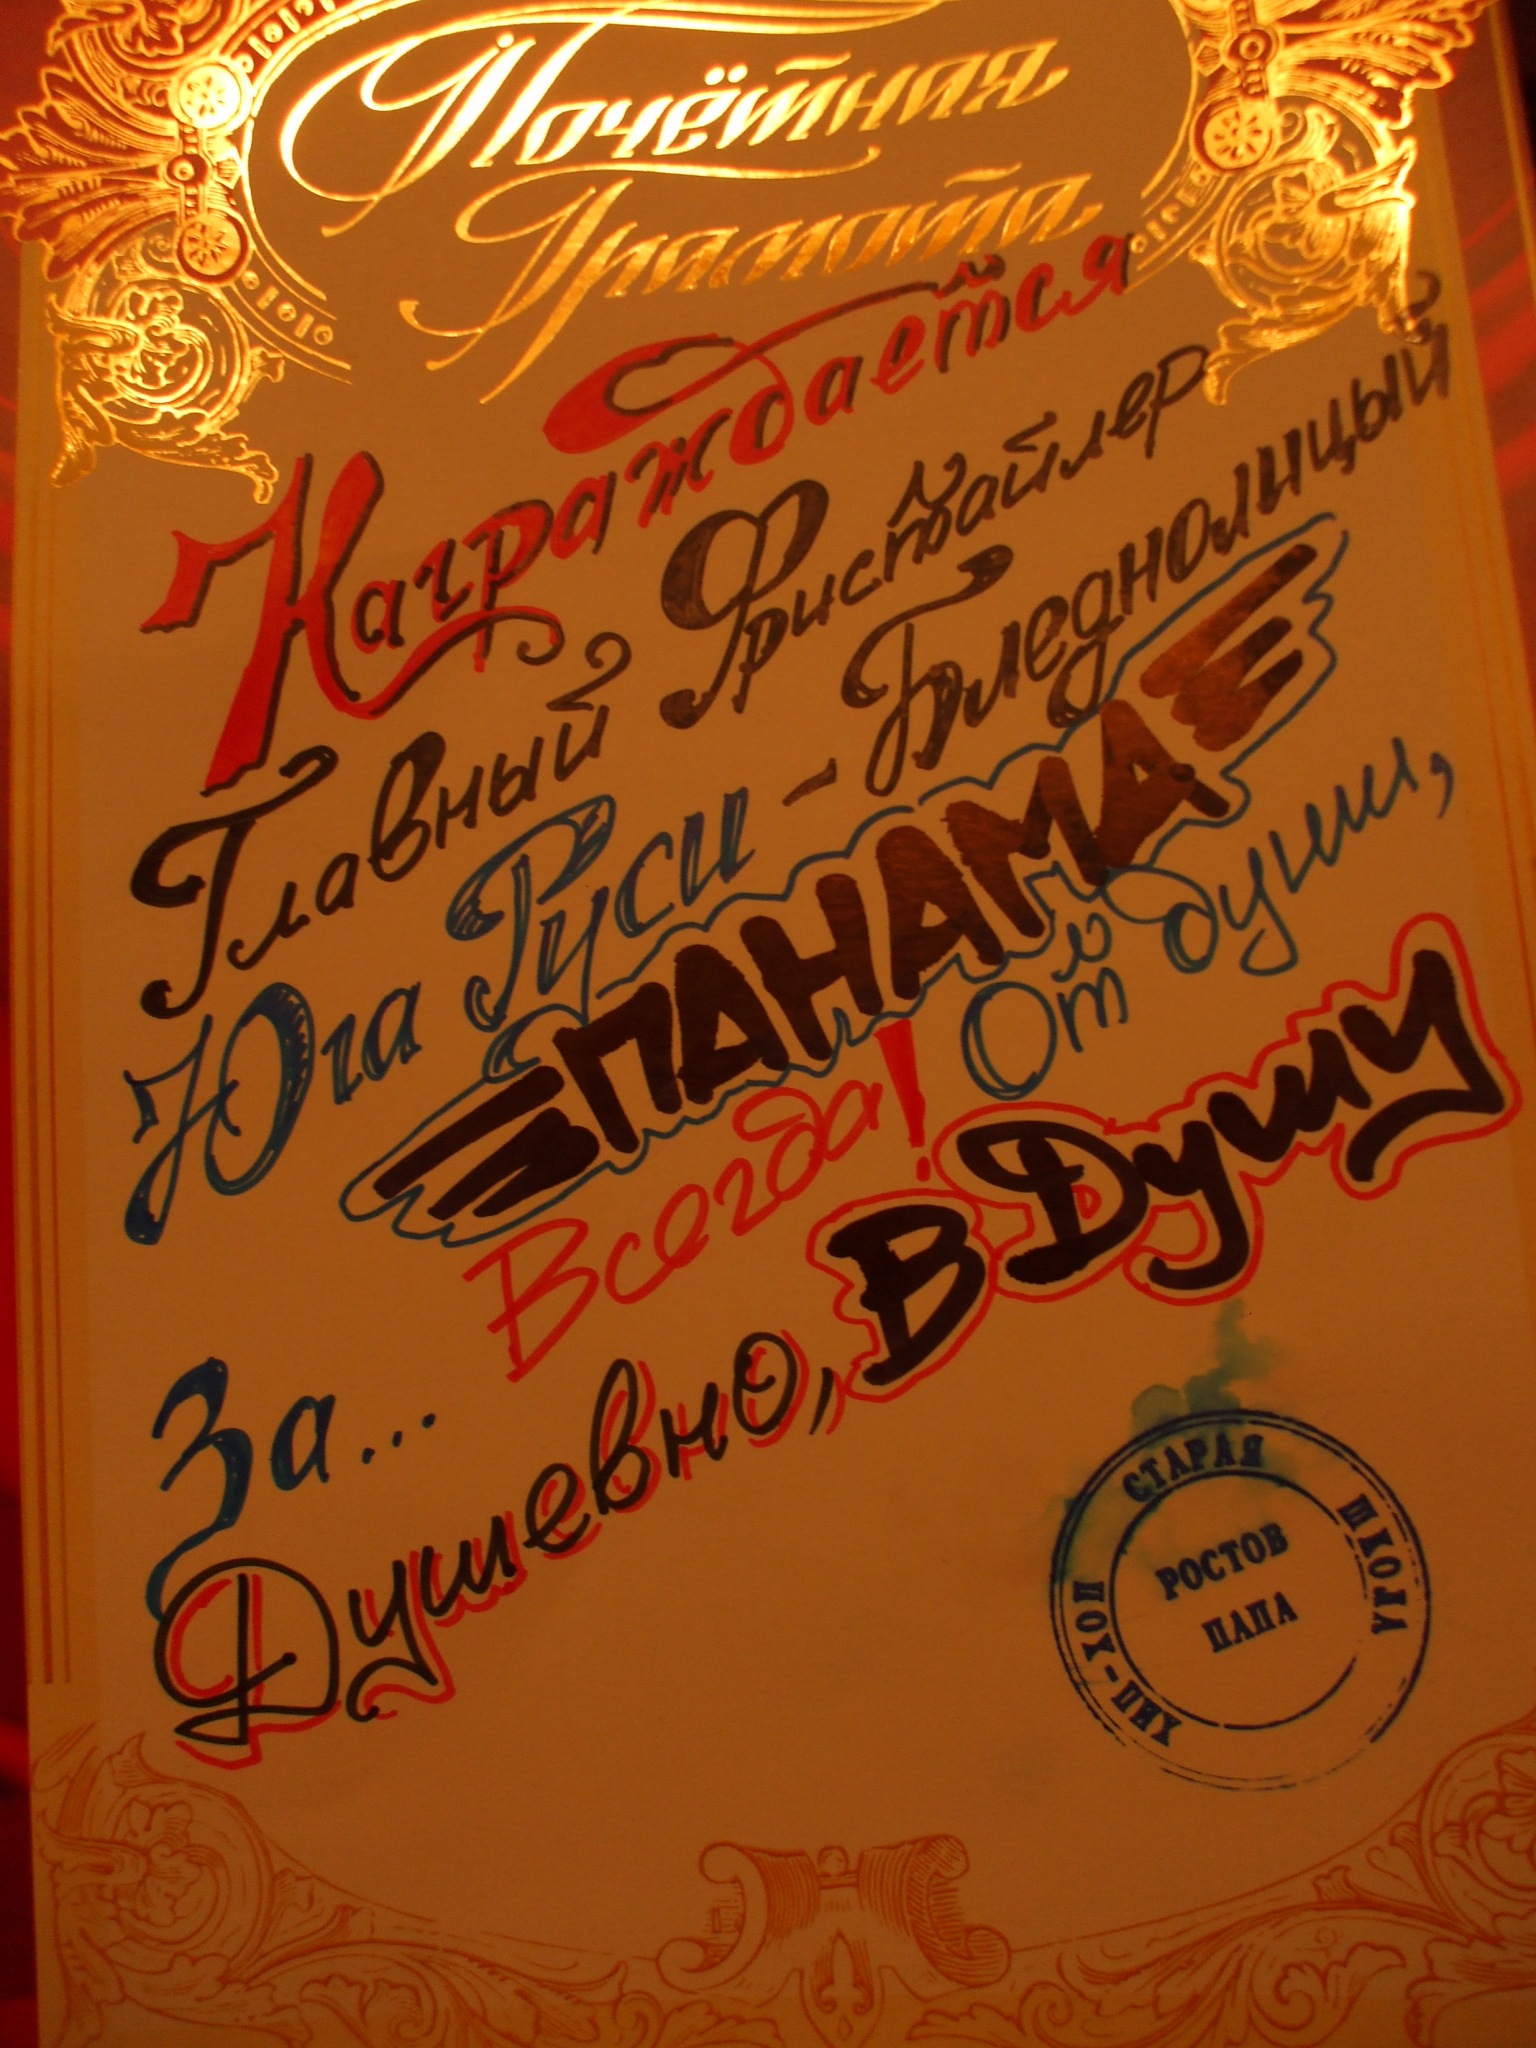 Почётная
Грамота
Награждается
Главный Фристайлер
Юга Руси - Бледнолицый
ПАНАМА
Всегда! От души,
За... Душевно, В Душу
СТАРАЯ ШКОЛА
ХИП-ХОП
РОСТОВ
ПАПА